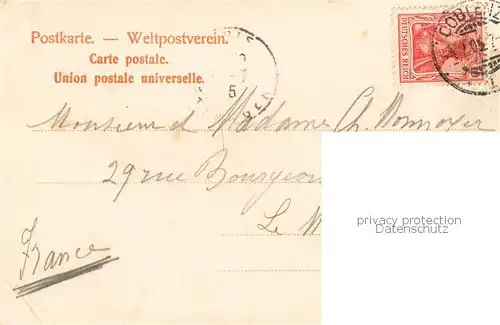 Postkarte. — Weltpostverein.
Carte postale.
Union postale universelle.
DEUTSCHES REICH
COBL
5
Monsieur et Madame Ch. Monnoyer
29 rue Bourgeoi
Le M
France
privacy protection
Datenschutz